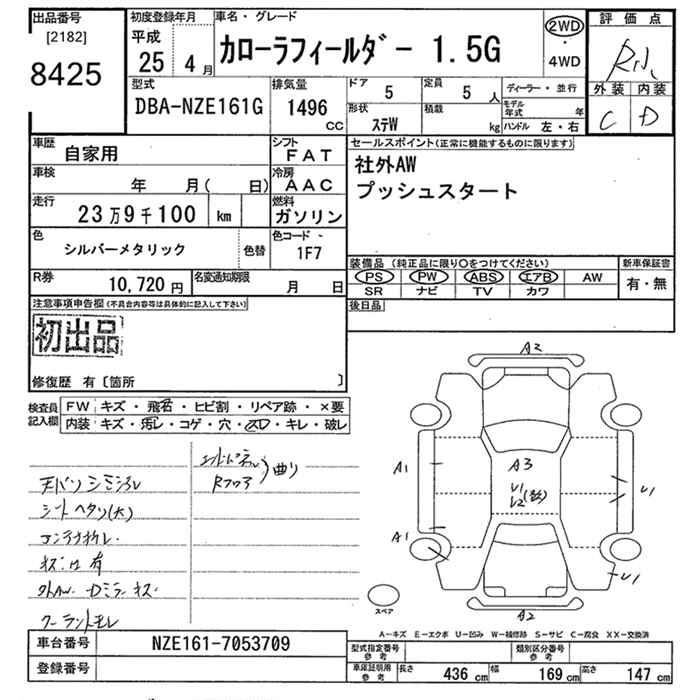 出品番号
[2182]
8425
初度登録年月
平成
25
4月
車名・グレード
カローラフィールダー 1.5G
2WD
・
4WD
評価点
外装 内装
C D
型式
DBA-NZE161G
排気量
1496
CC
ドア
5
定員
5 人
ディーラー・並行
形状
ステW
積載
kg
モデル年式 年
ハンドル 左・右
車歴
自家用
シフト
FAT
車検
年 月( 日)
冷房
AAC
走行
23万9千100 km
燃料
ガソリン
色
シルバーメタリック
色替
色コード
1F7
R券
10,720円
名変通知期限
月 日
セールスポイント(正常に機能するものに限ります)
社外AW
プッシュスタート
装備品(純正品に限り○をつけてください)
PS PW ABS エアB AW
SR ナビ TV カワ
新車保証書
有・無
後日品
注意事項申告欄(不具合内容等は具体的に記入して下さい)
初出品
修復歴 有〔箇所 〕
検査員記入欄
FW キズ・飛石・ヒビ割・リペア跡・×要
内装 キズ・汚レ・コゲ・穴・スレ・キレ・破レ
Rフロア
曲り
シートヘタリ(大)
キズ凹有
クーラントモレ
A2
A1
A3
U1
U2
U1
A1
U1
A2
スペア
A-キズ E-エクボ U-凹み W-補修跡 S-サビ C-腐食 XX-交換済
車台番号
NZE161-7053709
登録番号
型式指定番号
参考
類別区分番号
参考
車庫証明用
参考
長さ 436 cm
幅 169 cm
高さ 147 cm